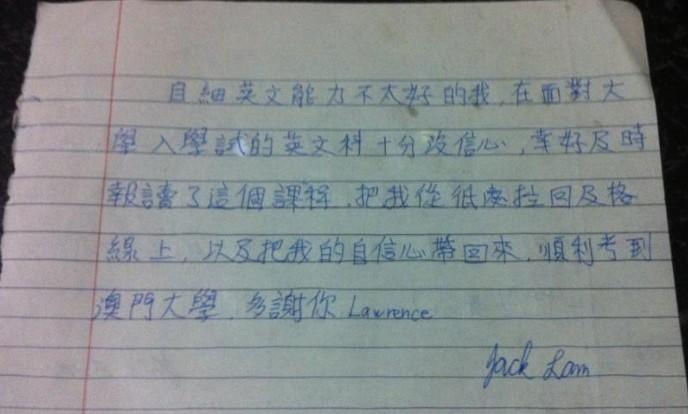 自細英文能力不太好的我,在面對大
學入學試的英文科十分沒信心,幸好及時
報讀了這個課程,把我從低處拉回及格
線上,以及把我的自信心帶回來,順利考到
澳門大學,多謝你 Lawrence
Jack Lam